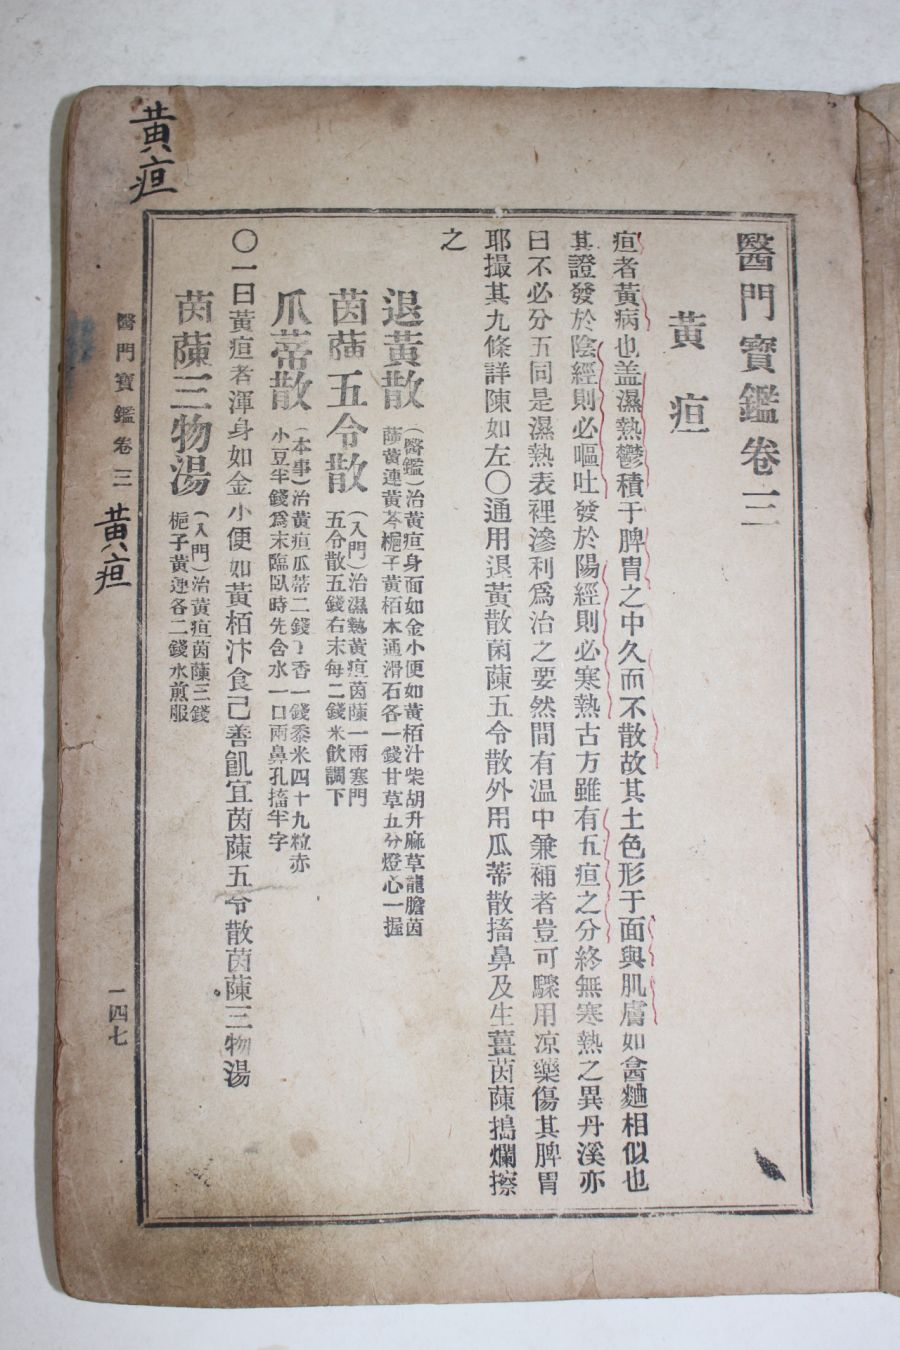 黃疸
醫門寶鑑卷三
黃疸
疸者黃病也盖濕熱鬱積于脾胃之中久而不散故其土色形于面與肌膚如盦麯相似也
其證發於陰經則必嘔吐發於陽經則必寒熱古方雖有五疸之分終無寒熱之異丹溪亦
曰不必分五同是濕熱表裡滲利爲治之要然間有温中兼補者豈可驟用凉藥傷其脾胃
耶撮其九條詳陳如左〇通用退黃散茵蔯五令散外用瓜蒂散搐鼻及生薑茵蔯搗爛擦
之
退黃散 (醫鑑)治黃疸身面如金小便如黃栢汁柴胡升麻草龍膽茵
蔯黃連黃芩梔子黃栢木通滑石各一錢甘草五分燈心一握
茵蔯五令散 (入門)治濕熱黃疸茵蔯一兩寒門
五令散五錢右末每二錢米飮調下
瓜蒂散 (本事)治黃疸瓜蒂二錢丁香一錢黍米四十九粒赤
小豆半錢爲末臨臥時先含水一口兩鼻孔搐半字
〇一曰黃疸者渾身如金小便如黃栢汁食已善飢宜茵蔯五令散茵蔯三物湯
茵蔯三物湯 (入門)治黃疸茵蔯三錢
梔子黃連各二錢水煎服
醫門寶鑑卷三 黃疸
一四七